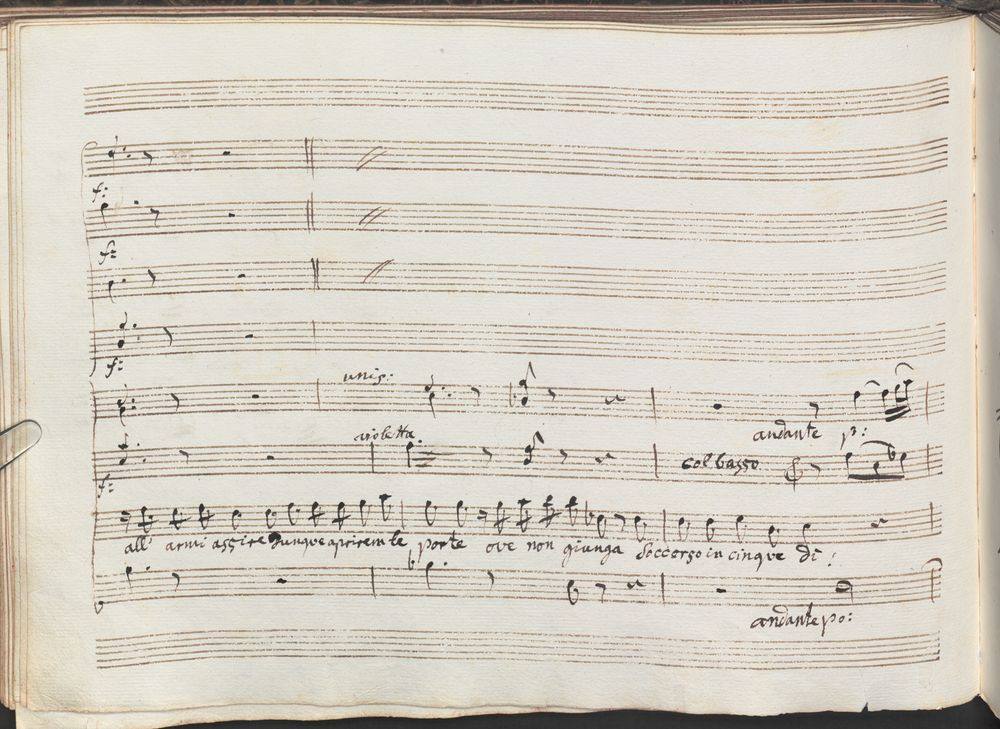 f:
f:
f:
unis:
andante p:
violetta.
col basso
f:
all' armi assire dunque apriremle porte ove non giunga soccorso in cinque dì!
andante po: